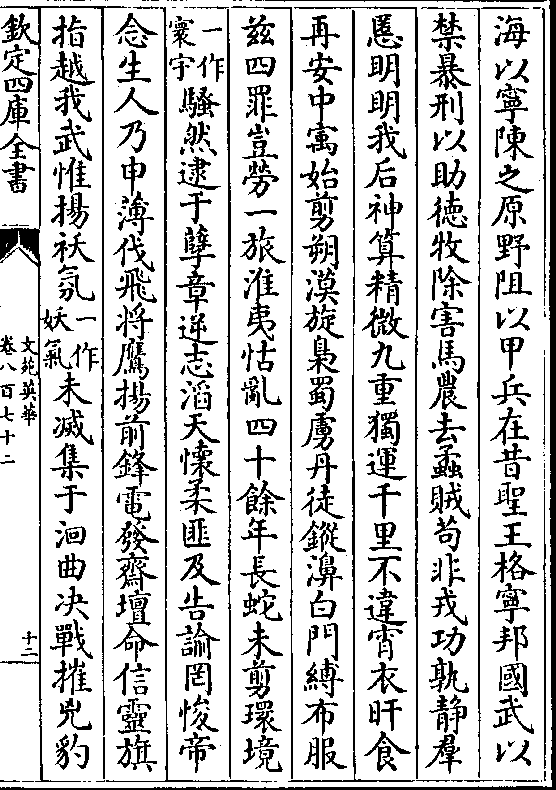 海以寧陳之原野阻以甲兵在昔聖王格寧邦國武以
禁暴刑以助徳牧除害馬農去蟊賊苟非戎功孰静羣
慝明明我后神算精微九重獨運千里不違宵衣旰食
再安中㝢始剪朔漠旋梟蜀虜丹徒鏦濞白門縛布服
兹四罪豈勞一旅淮夷怙亂四十餘年長蛇未剪環境
一作寰宇騷然逮于孽章逆志滔天懷柔匪及告諭罔悛帝
念生人乃申薄伐飛將鷹揚前鋒電發齋壇命信靈旗
指越我武惟揚祅氛一作妖氣未滅集于洄曲决戰摧兇豹
欽定四庫全書
文苑英華
卷八百七十二
十二